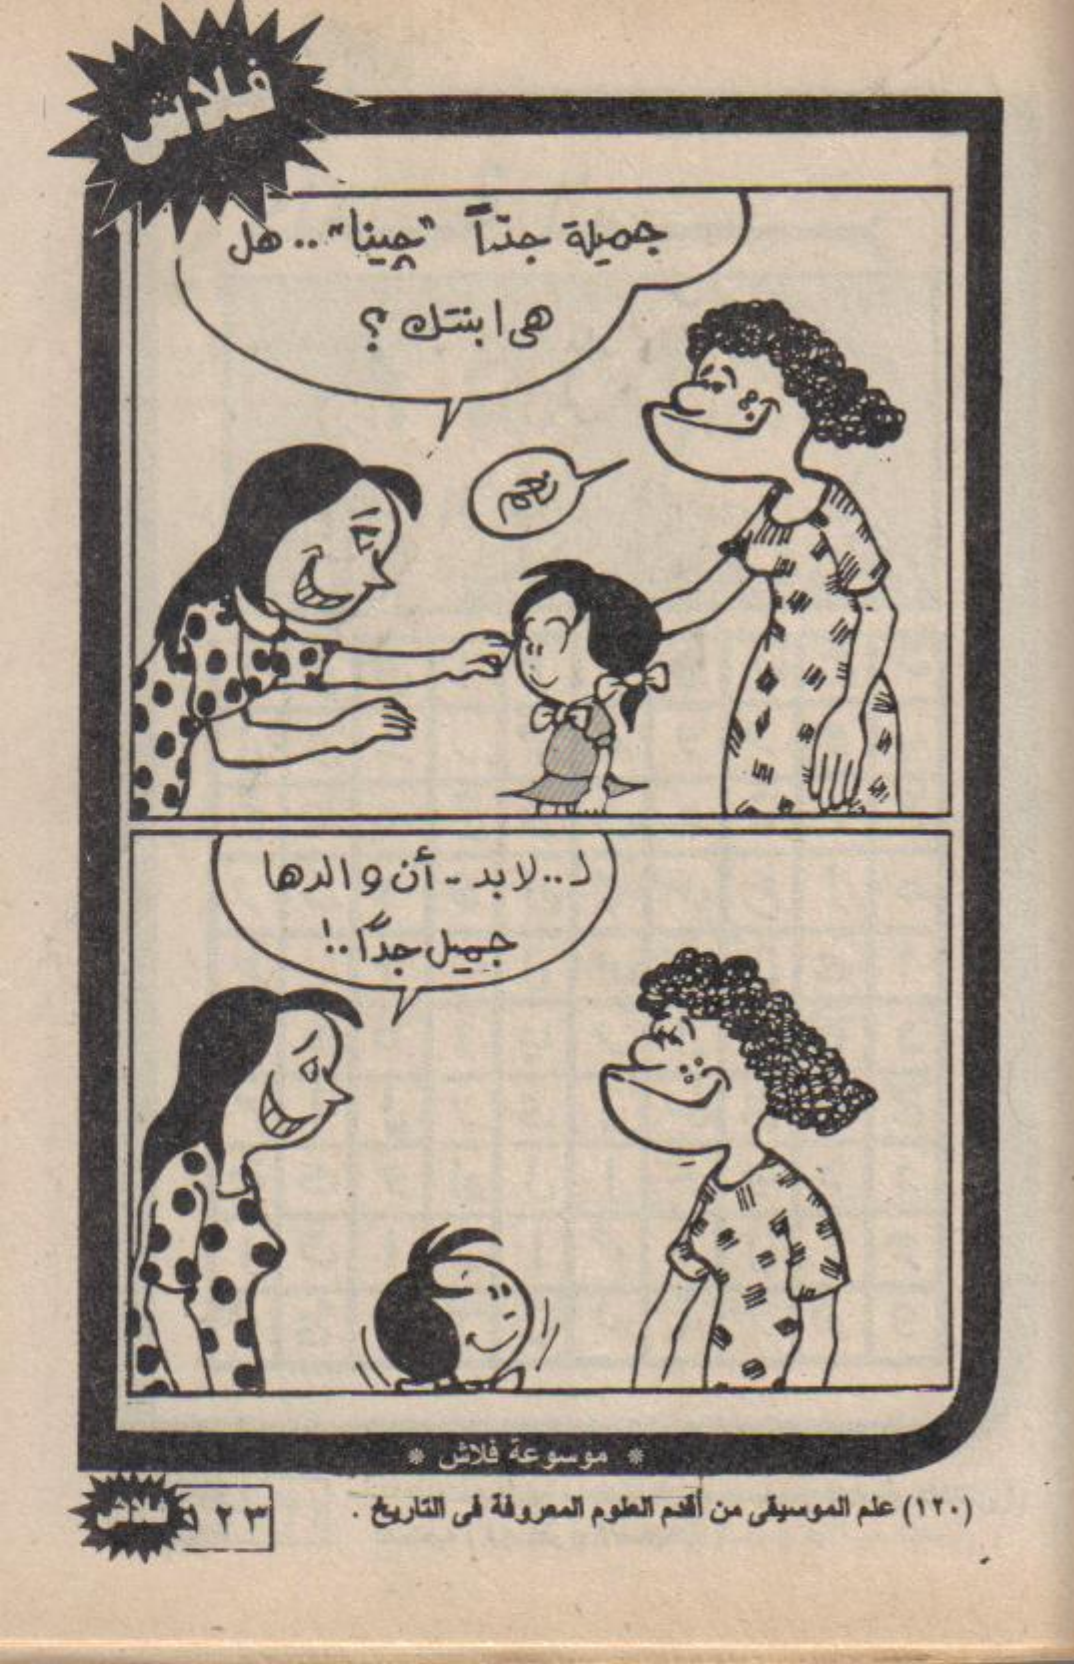 فلاش
جميلة جدّاً "چينا".. هل
هى ابنتك ؟
نعم
لـ..لابد .. أن والدها
جميل جدّاً..!
* موسوعة فلاش *
(١٢٠) علم الموسيقى من أقدم العلوم المعروفة فى التاريخ .
فلاش ١٢٣